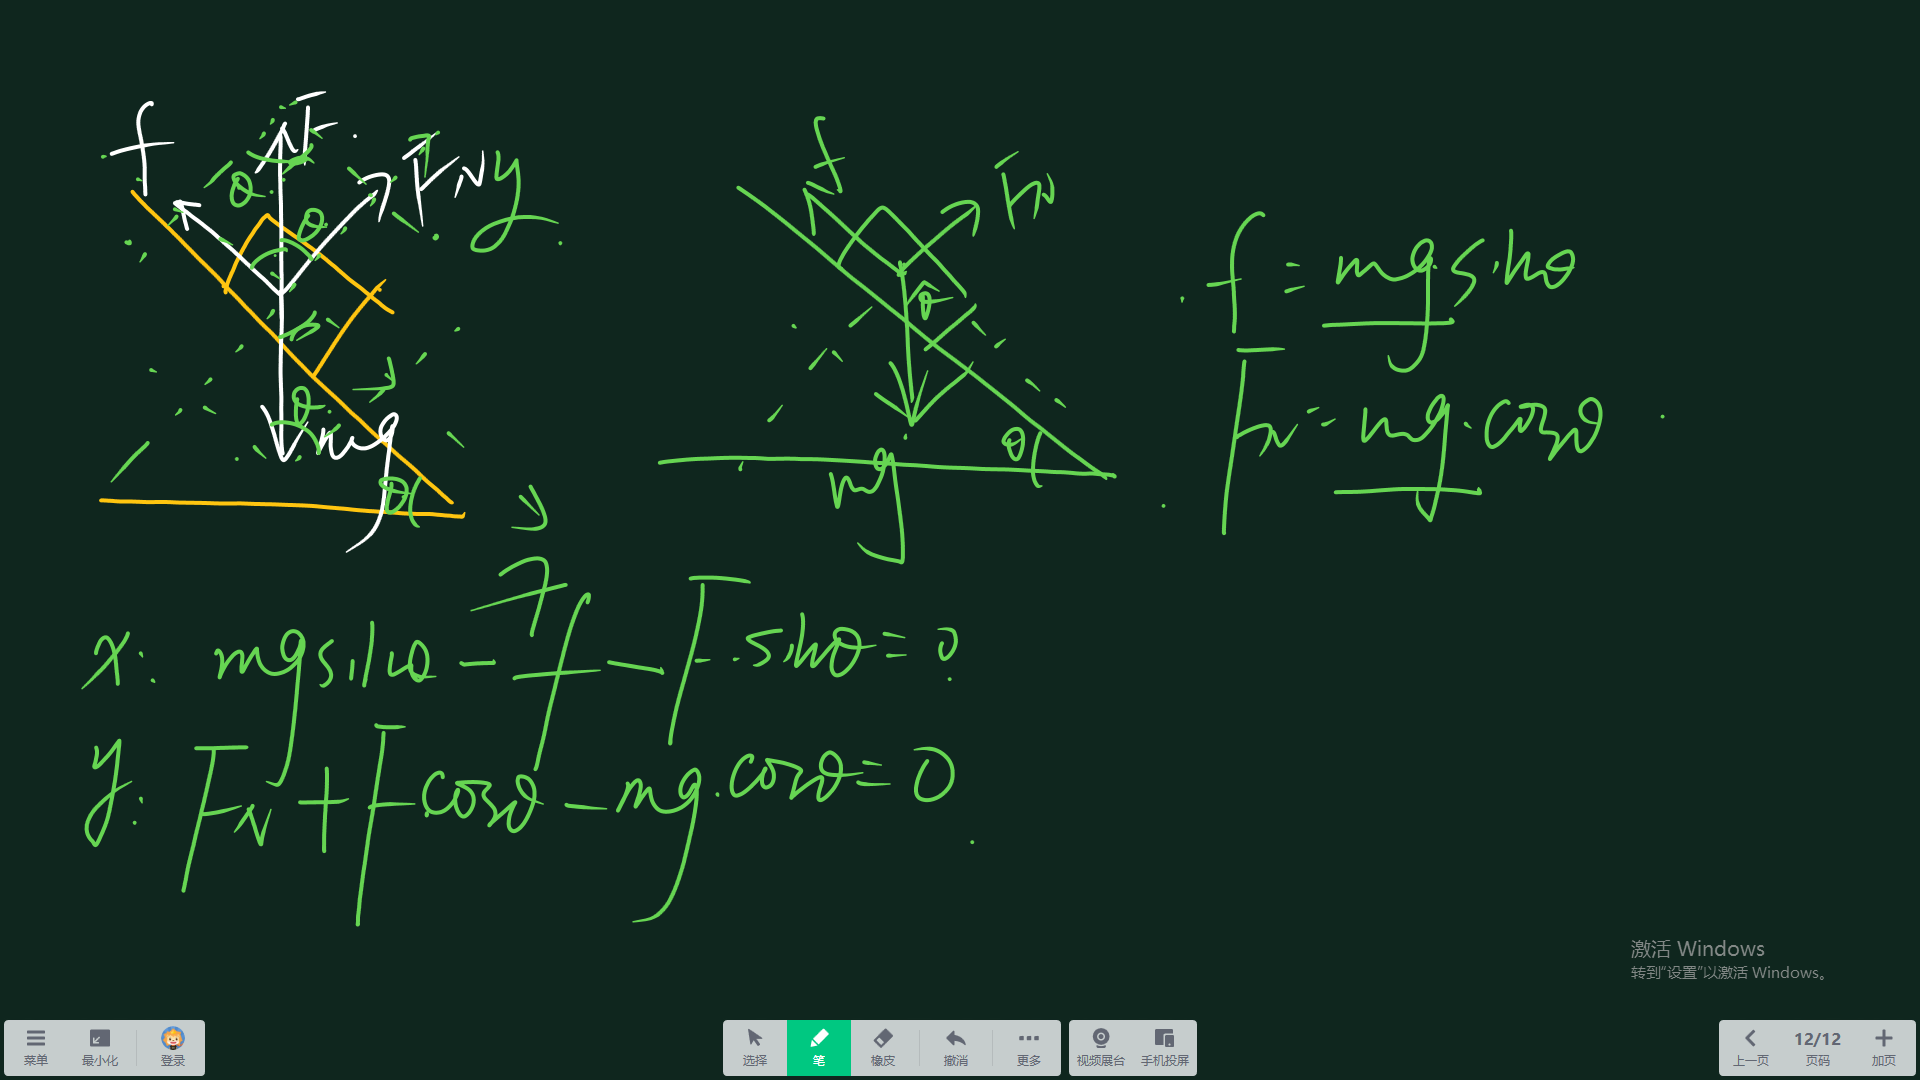 f F F_N y
θ θ
θ mg
θ
x
f F_N
θ
θ
mg
f = mg·sinθ
F_N = mg·cosθ
x: mgsinθ - f - F·sinθ = 0
y: F_N + Fcosθ - mg·cosθ = 0
激活 Windows
转到“设置”以激活 Windows。
菜单 最小化 登录 选择 笔 橡皮 撤消 更多 视频展台 手机投屏 上一页 12/12 页码 加页